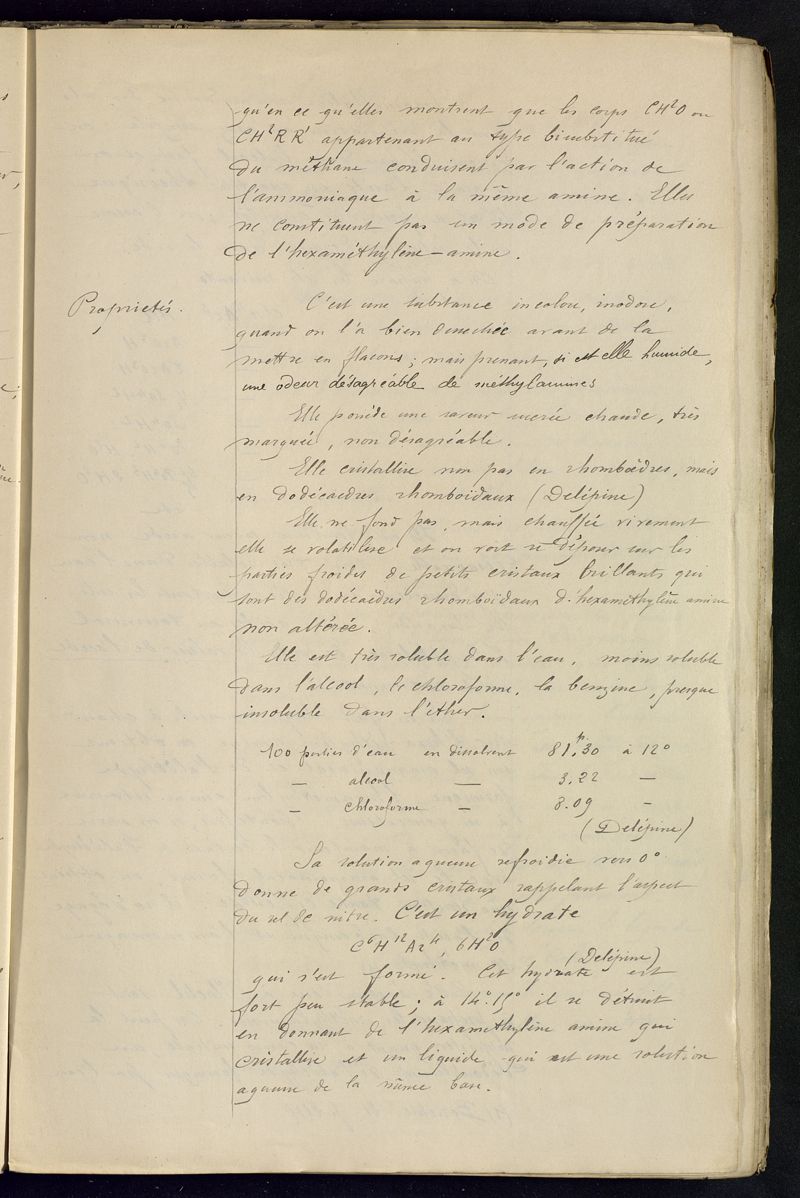 qu'en ce qu'elles montrent que les corps CH²O ou
CH²RR' appartenant au type bisubstitué
du méthane conduisent par l'action de
l'ammoniaque à la même amine. Elles
ne constituent pas un mode de préparation
de l'hexaméthylène-amine.
Propriétés.
C'est une substance incolore, inodore,
quand on l'a bien desséchée avant de la
mettre en flacons; mais prenant, si est elle humide,
une odeur désagréable de méthylamines
Elle possède une saveur sucrée chaude, très
marquée, non désagréable.
Elle cristallise non pas en rhomboèdres, mais
en dodécaèdres rhomboïdaux (Delépine)
Elle ne fond pas, mais chauffée vivement
elle se volatilise et on voit se déposer sur les
parties froides de petits cristaux brillants qui
sont des dodécaèdres rhomboïdaux d'hexaméthylène amine
non altérée.
Elle est très soluble dans l'eau, moins soluble
dans l'alcool, le chloroforme, la benzine, presque
insoluble dans l'éther.
100 parties d'eau en dissolvent 81p.30 à 12°
— alcool — 3.22 —
— chloroforme — 8.09 —
(Delépine)
Sa solution aqueuse refroidie vers 0°
donne de grands cristaux rappelant l'aspect
du sel de nitre. C'est un hydrate
C⁶H¹²Az⁴, 6H²O
(Delépine)
qui s'est formé. Cet hydrate est
fort peu stable; à 14°.15° il se détruit
en donnant de l'hexaméthylène amine qui
cristallise et un liquide qui est une solution
aqueuse de la même base.